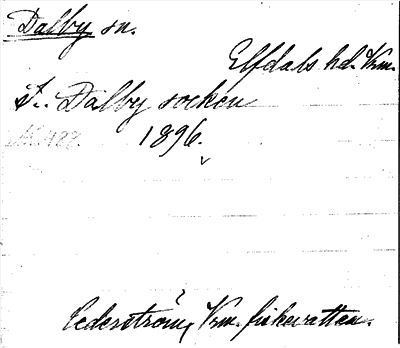 Dalby sn.
Elfdals hd. Vrm.
S. Dalby socken
1896.
Cederström, Vrm. fiskevatten.